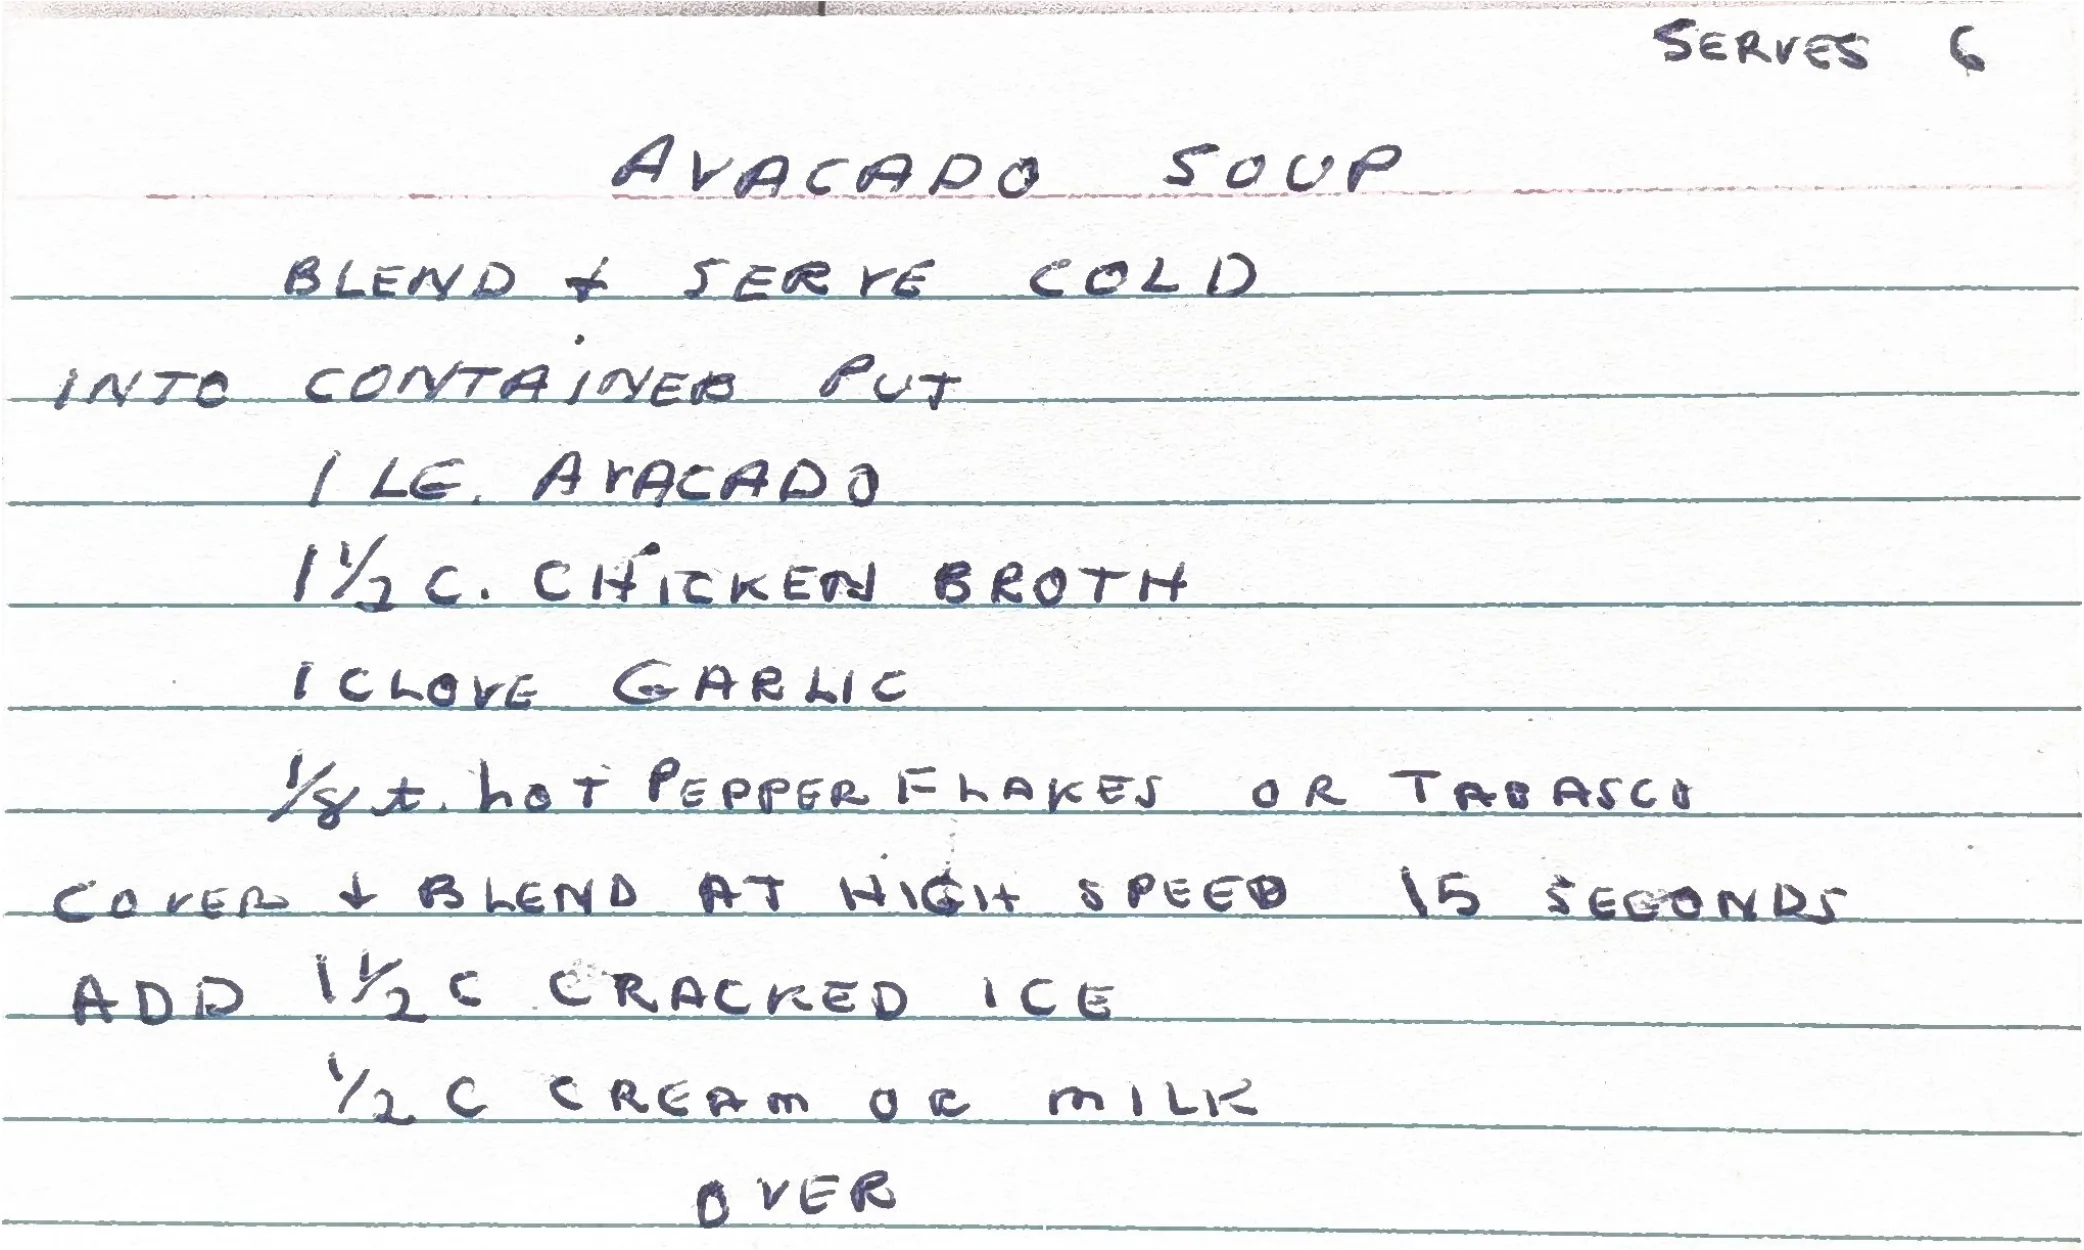 SERVES 6
AVACADO SOUP
BLEND & SERVE COLD
INTO CONTAINER PUT
1 LG. AVACADO
1 1/2 C. CHICKEN BROTH
1 CLOVE GARLIC
1/8 t. hOT PEPPER FLAKES OR TABASCO
COVER & BLEND AT HIGH SPEED 15 SECONDS
ADD 1 1/2 C CRACKED ICE
1/2 C CREAM OR MILK
OVER